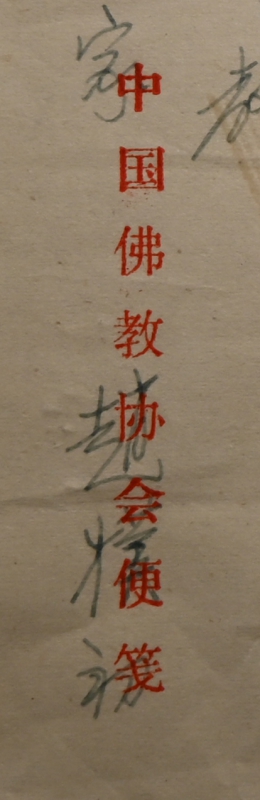 教
家
中国佛教协会便笺
赵朴初